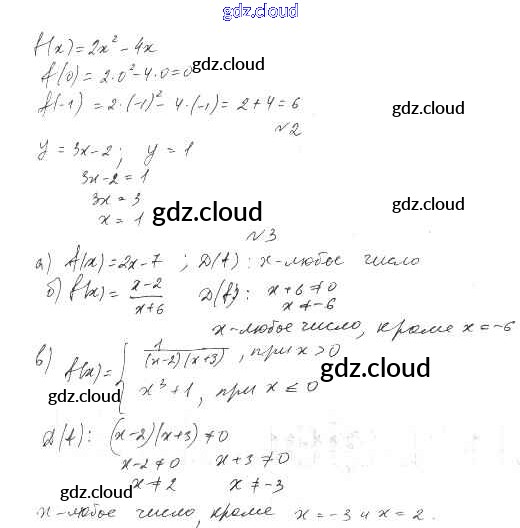 gdz.cloud
f(x) = 2x² - 4x
f(0) = 2·0² - 4·0 = 0 gdz.cloud
f(-1) = 2·(-1)² - 4·(-1) = 2 + 4 = 6 gdz.cloud
№2
y = 3x - 2; y = 1
3x - 2 = 1
3x = 3 gdz.cloud
x = 1 gdz.cloud
№3
а) f(x) = 2x - 7; D(f): x - любое число
б) f(x) = (x-2)/(x+6) D(f): x + 6 ≠ 0
x ≠ -6
gdz.cloud
x - любое число, кроме x = -6
в) f(x) = { 1/((x-2)(x+3)), при x > 0
gdz.cloud
x³ + 1, при x ≤ 0
gdz.cloud
D(f): (x-2)(x+3) ≠ 0
x - 2 ≠ 0 x + 3 ≠ 0 gdz.cloud
x ≠ 2 x ≠ -3
gdz.cloud gdz.cloud
x - любое число, кроме x = -3 и x = 2.